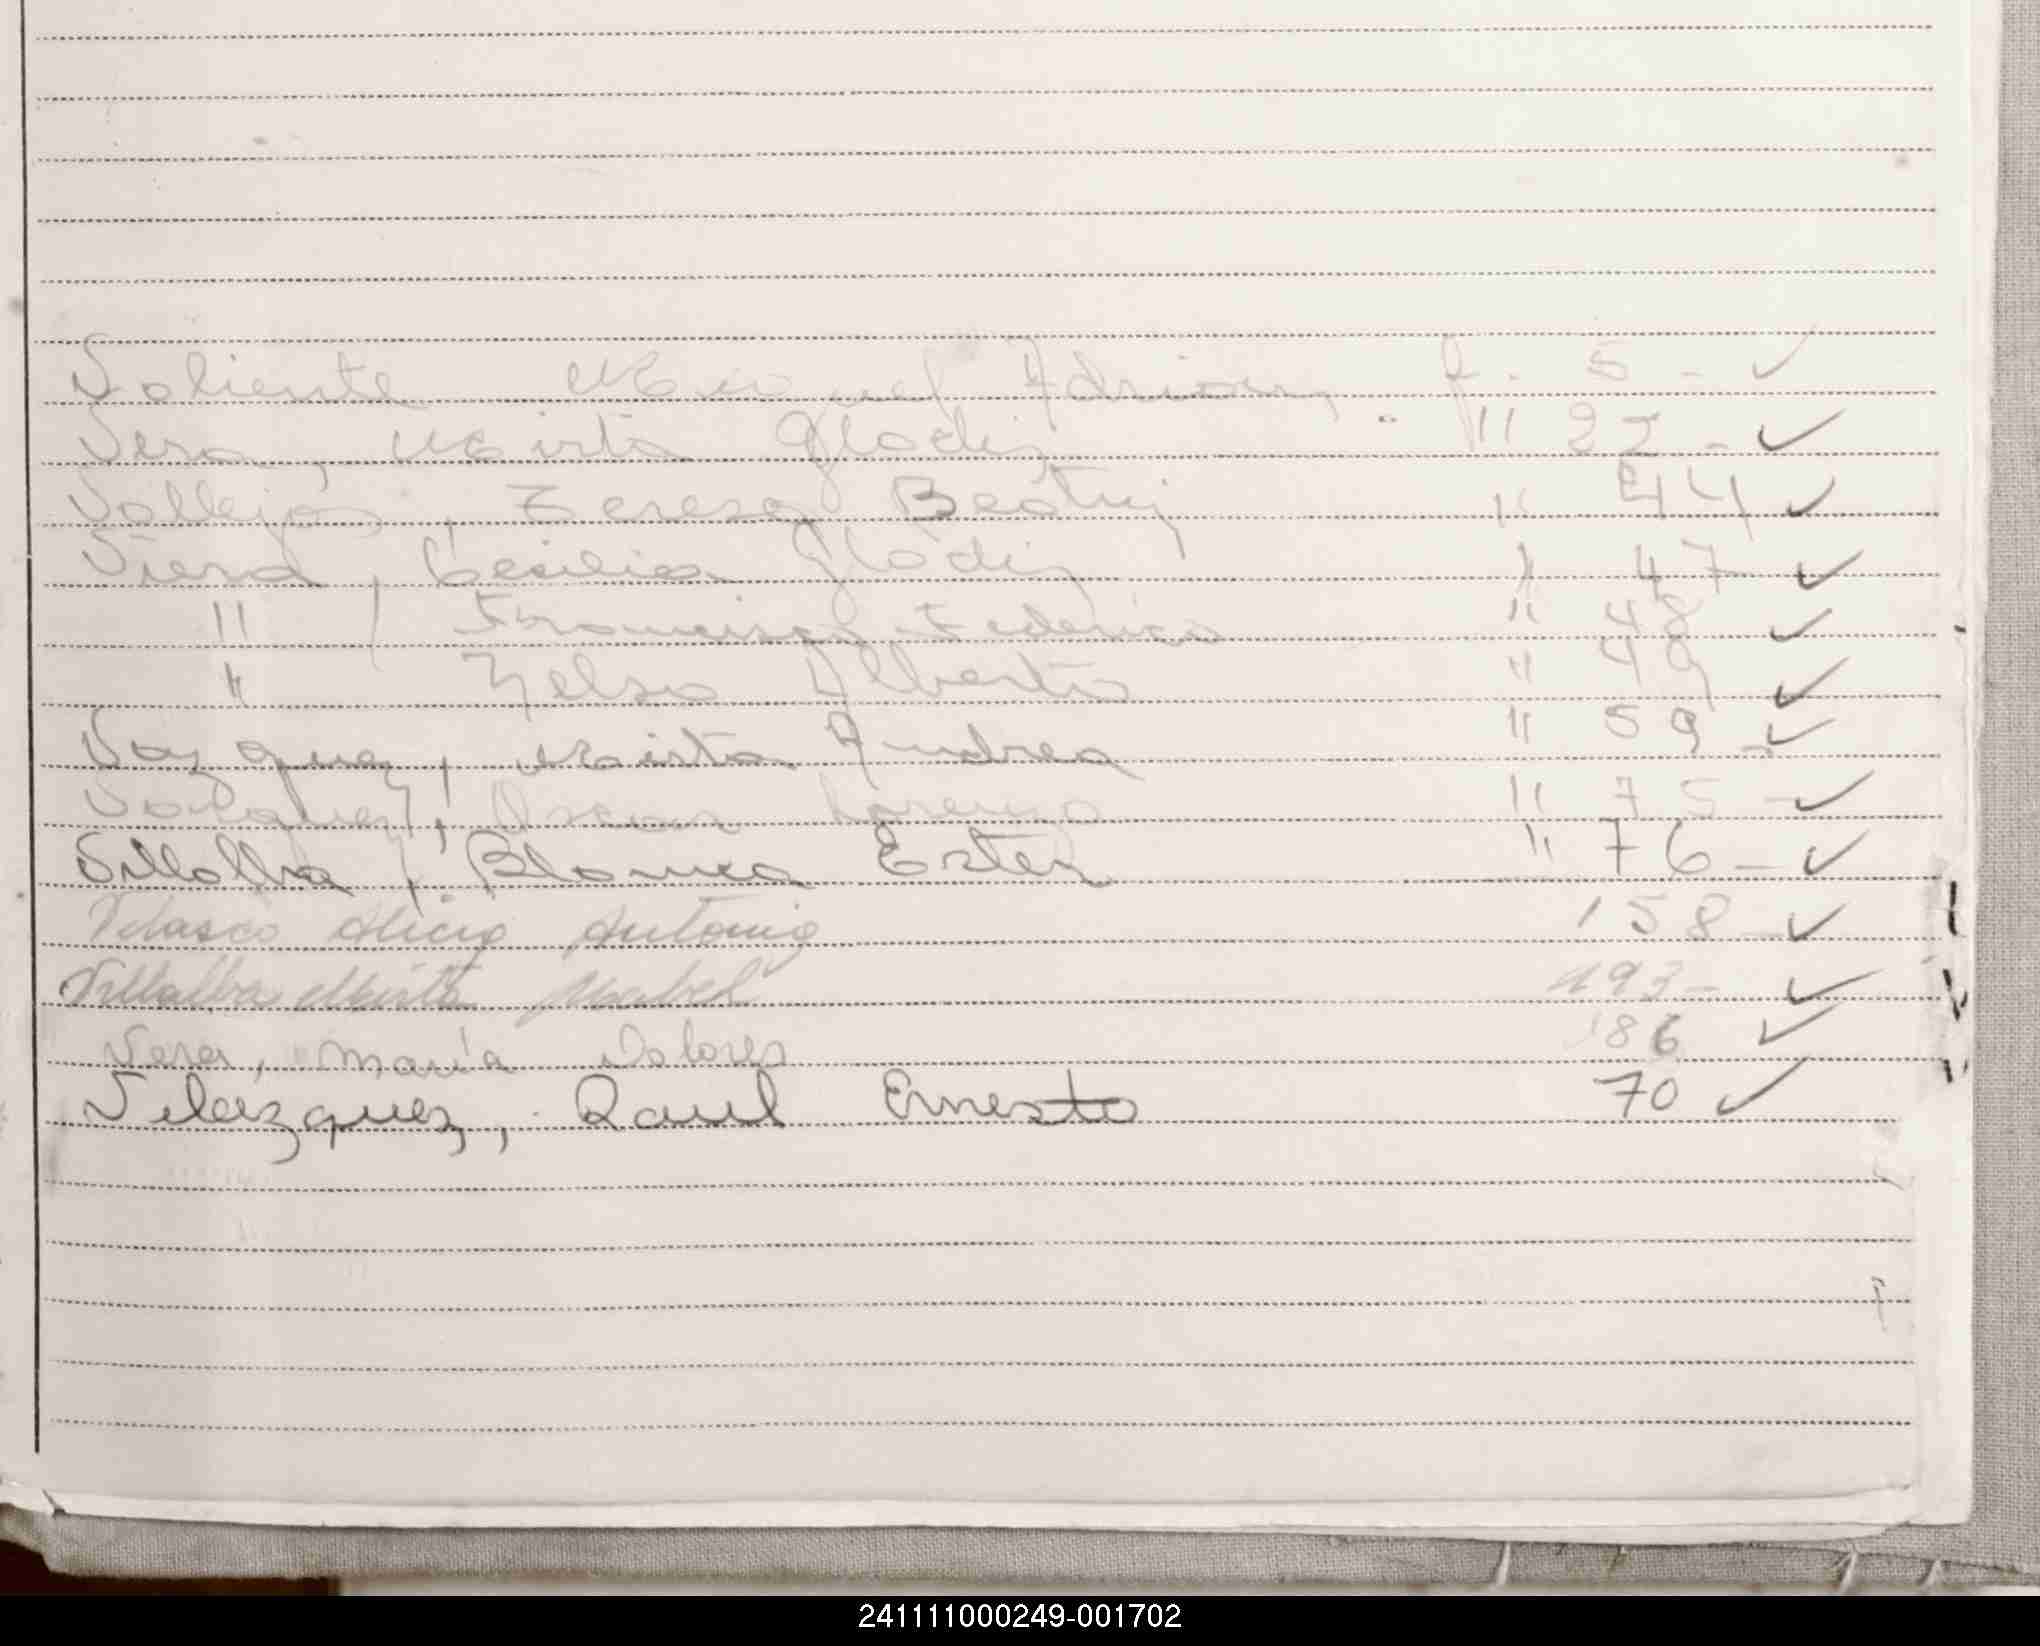 Valiente Manuel Adrian, f. 5 - ✓
Vera, Mirta Gladiz " 22 - ✓
Vallejos, Teresa Beatriz " 44 ✓
Viera, Cecilia Gladiz " 47 ✓
" , Francisco Federico " 48 ✓
" Nelso Alberto " 49 ✓
Vazquez, Mirta Andrea " 59 - ✓
Oscar Lorenzo " 75 - ✓
Villalba, Blanca Ester " 76 - ✓
Velasco Alicia Antonia 158 - ✓
Villalba Mirta Mabel 193 - ✓
Vera, María Dolores 186 ✓
Velazquez, Raul Ernesto 70 ✓
241111000249-001702